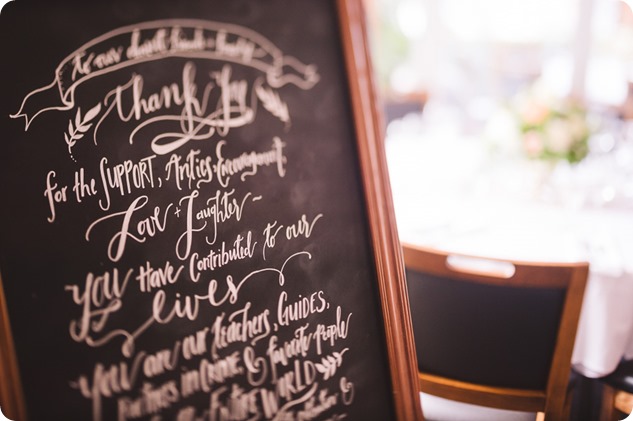 to our dearest friends + family
Thank You
for the SUPPORT, Antics, Encouragement,
Love + Laughter ~
you Have Contributed to our
lives
you are our teachers, GUIDES,
Partners in CRIME, & favorite people
ENTIRE WORLD